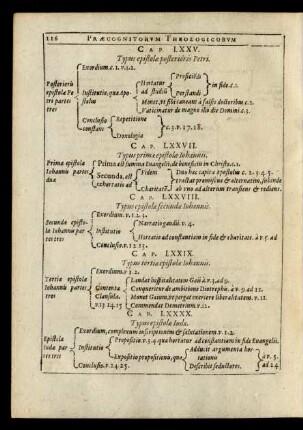 116 PRÆCOGNITORVM THEOLOGICORVM
CAP. LXXV.
Typus epistolæ posterioris Petri.
Exordium. c. 1. v. 1. 2.
Posterioris epistolæ Petri partes tres
Institutio, qua Apostolus
Hortatur ad
Proficisci
Perstandi
in fide. c. 1.
Monet, vt sibi caueant à falsis doctoribus. c. 2.
Vaticinatur de magno illo die Domini. c. 3.
Conclusio constans
Repetitione
Doxologia
c. 3. v. 17. 18.
CAP. LXXVII.
Typus prima epistolæ Iohannis.
Prima epistola Iohannis partes duæ
Prima est summa Euangelii, de beneficiis Christi. c. 1.
Secunda, est exhortatio ad
Fidem
Charitatē
Duo hæc capita Apostolus c. 2. 3. 4. 5.
tractat promiscue & alternatim, subinde
ab vno ad alterum transiens & rediens.
CAP. LXXVIII.
Typus epistolæ secundæ Iohannis.
Exordium. v. 1. 2. 3.
Secunda epistola Iohannis partes tres
Institutio
Narratio gaudii. v. 4.
Hortatio ad constantiam in fide & charitate. à v. 5. ad
Conclusio. v. 12. 13.
CAP. LXXIX.
Typus tertiæ epistolæ Iohannis.
Exordium. v. 1. 2.
Tertia epistola Iohannis partes tres
Laudat hospitalitatem Gaii à v. 3. ad 9.
Conqueritur de ambitione Diotrephis. à v. 9. ad 11.
Monet Gaium, vt pergat exercere liberalitatem. v. 11.
Commendat Demetrium. v. 12.
Clausula. v. 13. 14. 15
CAP. LXXXX.
Typus epistolæ Iudæ.
Exordium, complexum inscriptionem & salutationem. v. 1. 2.
Epistola Iudæ partes tres
Institutio
Propositio. v. 3. 4. qua hortatur ad constantiam in fide Euangelii.
Expositio propositionis, qua
Adducit argumenta hortationis
Describit seductores.
à v. 5. ad 24
Conclusio. v. 24. 25.